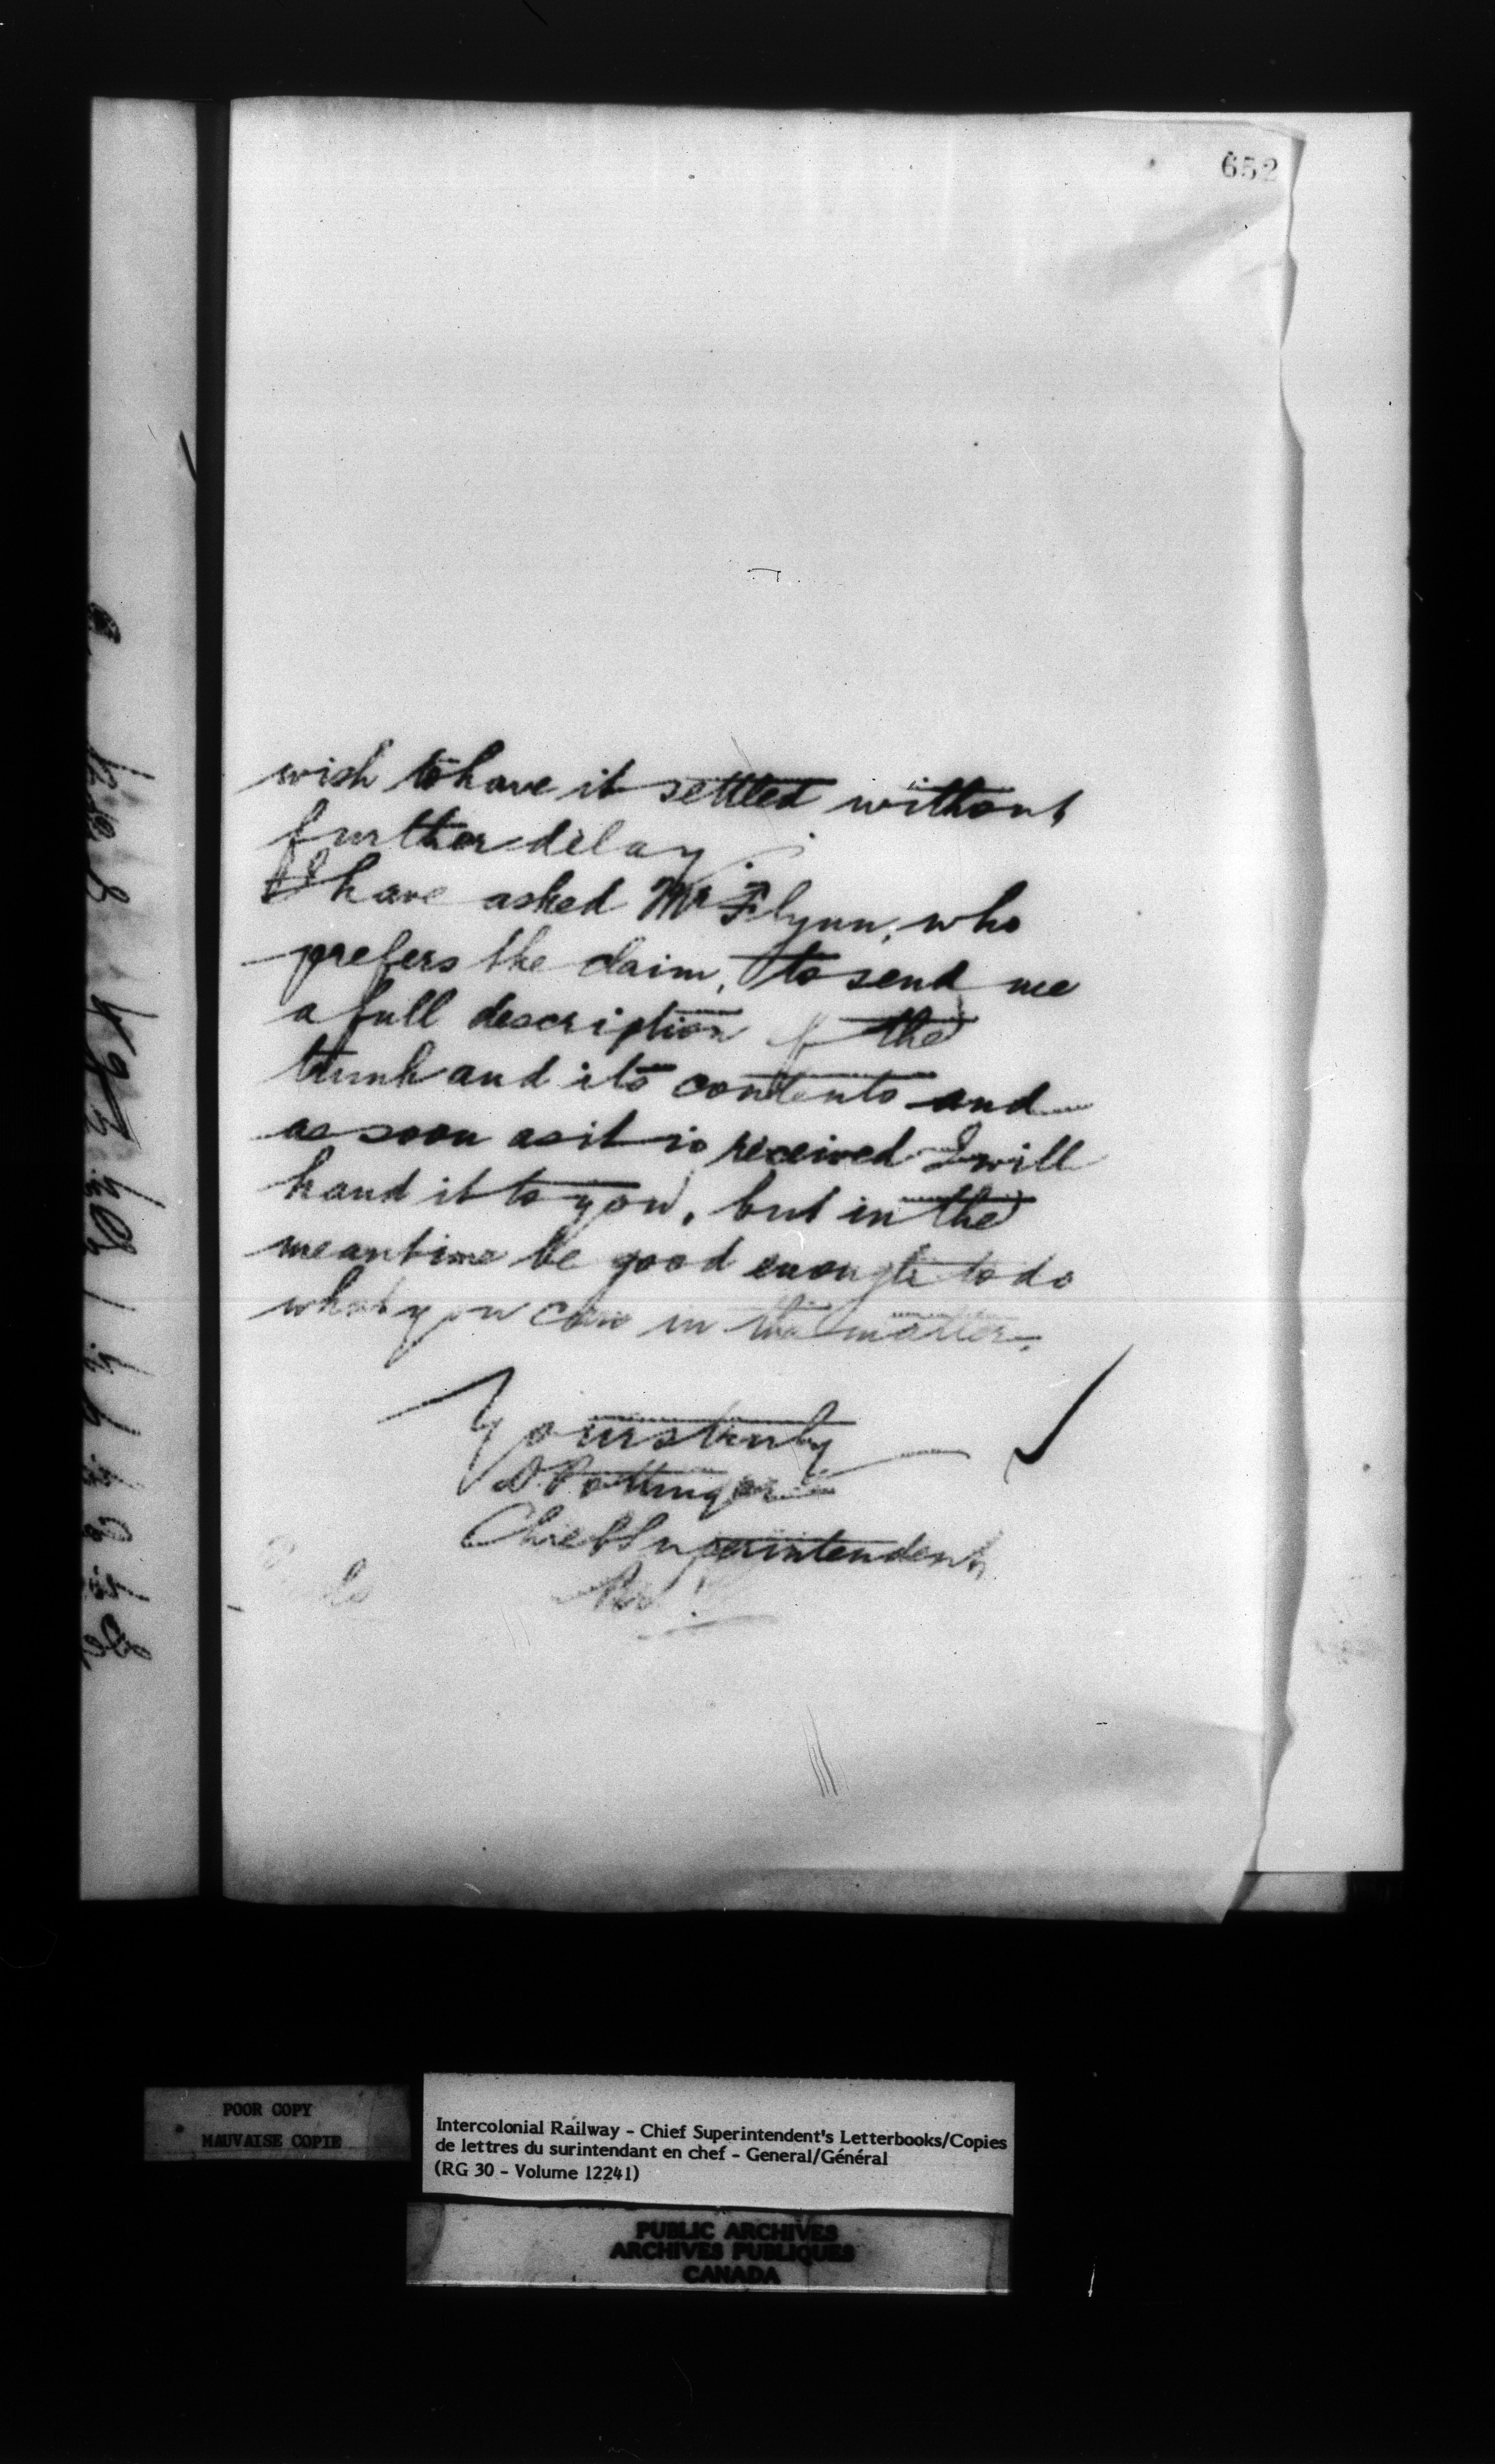 652
wish to have it settled without
further delay.
I have asked Mr Flynn, who
prefers the claim, to send me
a full description of the
trunk and its contents and
as soon as it is received I will
hand it to you, but in the
meantime be good enough to do
what you can in the matter.
Yours truly
D. Pottinger
Chief Superintendent
POOR COPY
MAUVAISE COPIE
Intercolonial Railway - Chief Superintendent's Letterbooks/Copies
de lettres du surintendant en chef - General/Général
(RG 30 - Volume 12241)
PUBLIC ARCHIVES
ARCHIVES PUBLIQUES
CANADA